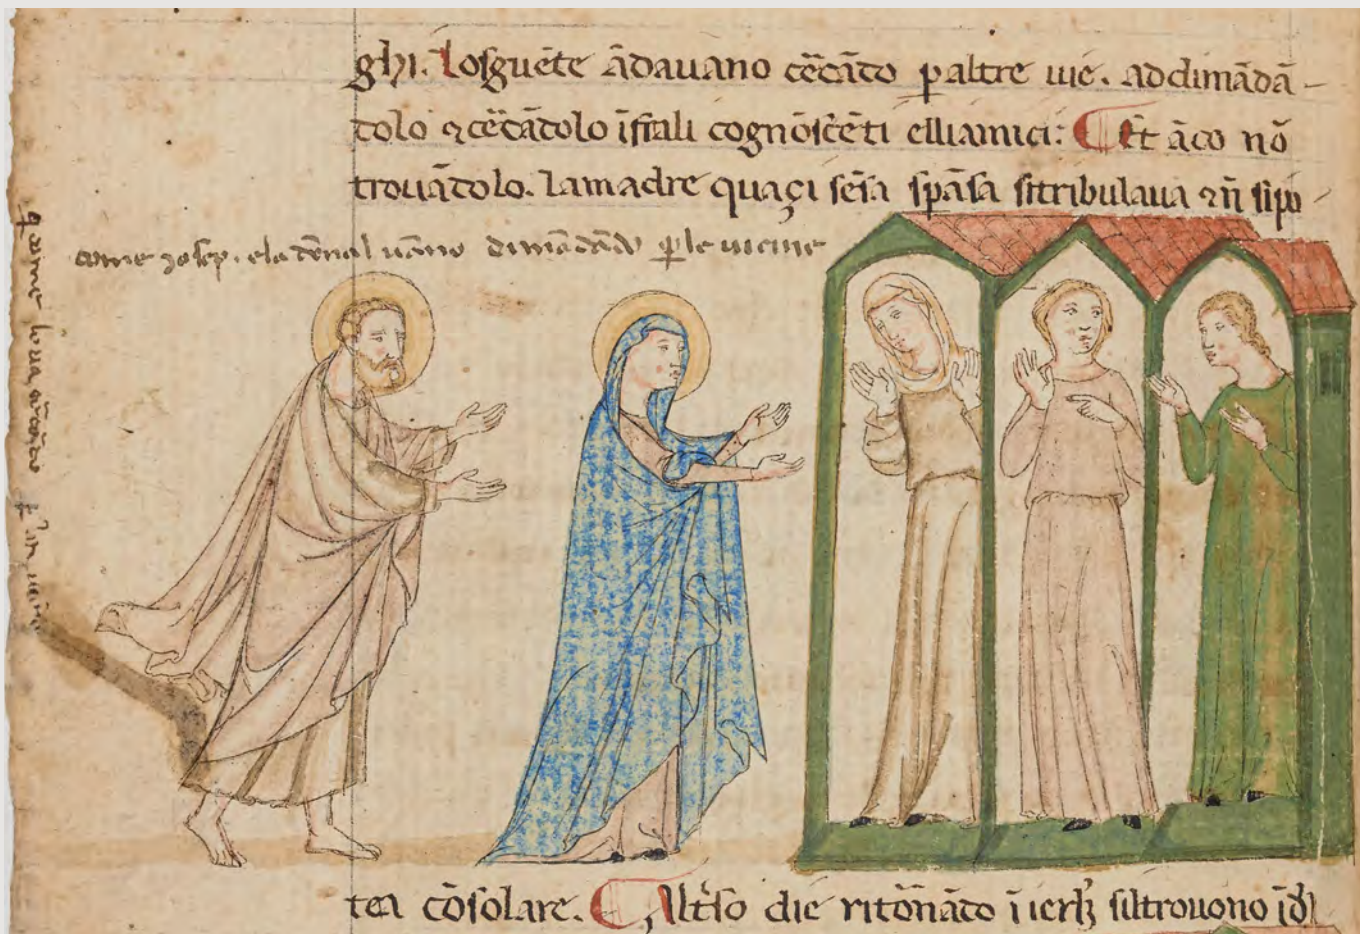 ghi. Losguẽte ãdauano cẽcãto p altre uie. addimãdã-
tolo ⁊ cẽcãtolo ĩfrali cognõscẽti elliamici: ¶ Et ãco nõ
trouãtolo. lamadre quaçi sẽsa spãsa sitribulaua ⁊ ñ sipo-
come iosep. ela dõna luãno dimãdãdo p le uicine
tea cõsolare. ¶ Altso die ritõnãto ĩ ierlȝ siltrouono ĩ